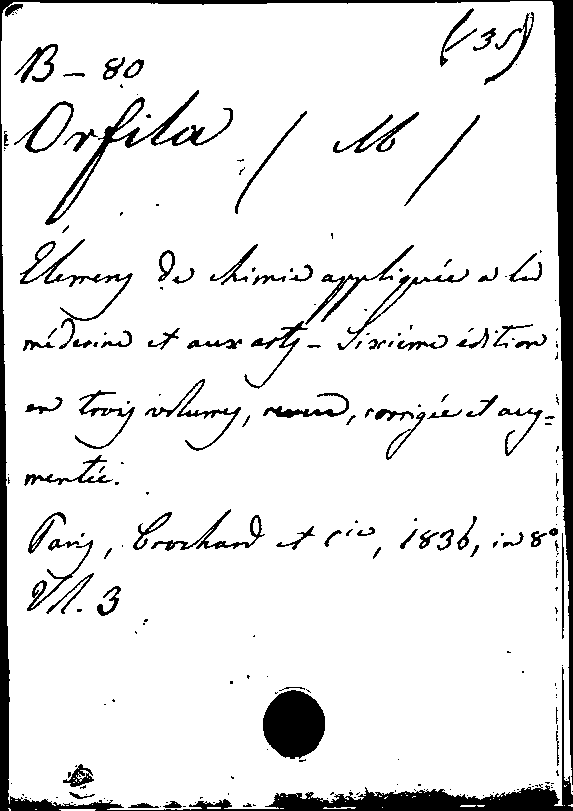 (135)
B – 80
Orfila ( M )
Élemens de chimie appliquée a la
médecine et aux arts – Sixiéme édition
en trois volumes, revue, corrigée et aug=
mentée.
Paris, Crochard et Cie, 1836, in 8°
Vol. 3